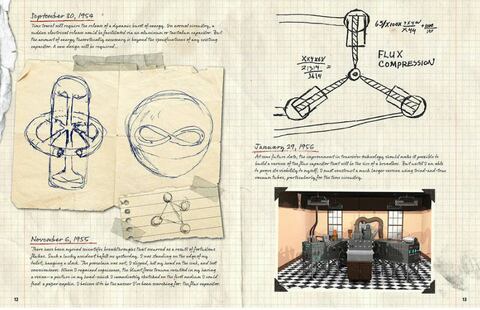 September 30, 1954
Time travel will require the release of a dynamic burst of energy. In normal circuitry, a
sudden electrical release could be facilitated via an aluminum or tantalum capacitor. But
the amount of energy theoretically necessary is beyond the specifications of any existing
capacitor. A new design will be required...
November 6, 1955
There have been myriad scientific breakthroughs that occurred as a result of fortuitous
flukes. Such a lucky accident befell me yesterday. I was standing on the edge of my
toilet, hanging a clock. The porcelain was wet, I slipped, hit my head on the sink, and lost
consciousness. When I regained cognizance, the blunt force trauma resulted in my having
a vision—a picture in my head—which I immediately sketched on the first medium I could
find: a paper napkin. I believe it to be the answer I've been searching for: the flux capacitor.
12
FLUX
COMPRESSION
January 29, 1956
At some future date, the improvement in transistor technology should make it possible to
build a version of the flux capacitor that will be the size of a breadbox. But until I am able
to prove its viability to myself, I must construct a much larger version using tried-and-true
vacuum tubes, particularly for the time circuits.
13